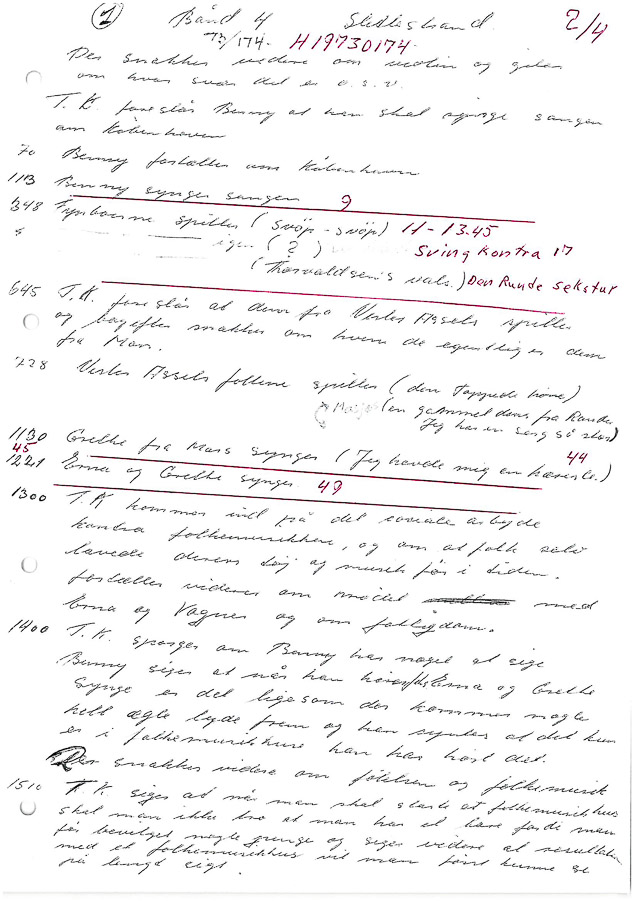 ① Bånd 4 Slettestrand. 2/4
73/174. H19730174.
Der snakkes videre om violin og
om hvor svær det er o.s.v.
T.K. foreslår Benny at han skal synge sangen
om København
70 Benny fortæller om København
1113 Benny synger sangen 9
348 Fynboerne spiller (svöp-svöp) 11-13.45
igen (2) Sving kontra 17
(Thorvaldsens vals.) Den Runde sekstur
645 T.K. foreslår at dem fra Vester Hssels spiller
og bagefter snakker om hvem de egentlig er dem
fra Mors.
728 Vester Hssels folkene spiller (den toppede höne)
(en gammel dans fra Randers
Jeg har en sorg så stor)
1130 Grethe fra Mors synger (Jeg havde mig en kæreste.) 44
45
1221 Erna og Grethe synger. 49
1300 T.K kommer ind på det sociale arbejde
kontra folkemusikken, og om at folk selv
lavede deres töj og musik för i tiden.
fortæller videre om mödet med
Erna og Vagner og om fattigdom.
1400 T.K. spørger om Benny har noget at sige
Benny siger at når han hører Erna og Grethe
synge er det ligesom der kommer nogle
helt ægte lyde frem og han synes at det kun
er i folkemusikhuse han har hört det.
Der snakkes videre om følelsen og folkemusik
1510 T.K. siger at når man skal starte et folkemusikhus
skal man ikke tro at man har et bare fordi man
får bevilget nogle penge og siger videre at resultaten
med et folkemusikhus vil man först kunne se
på langt sigt.